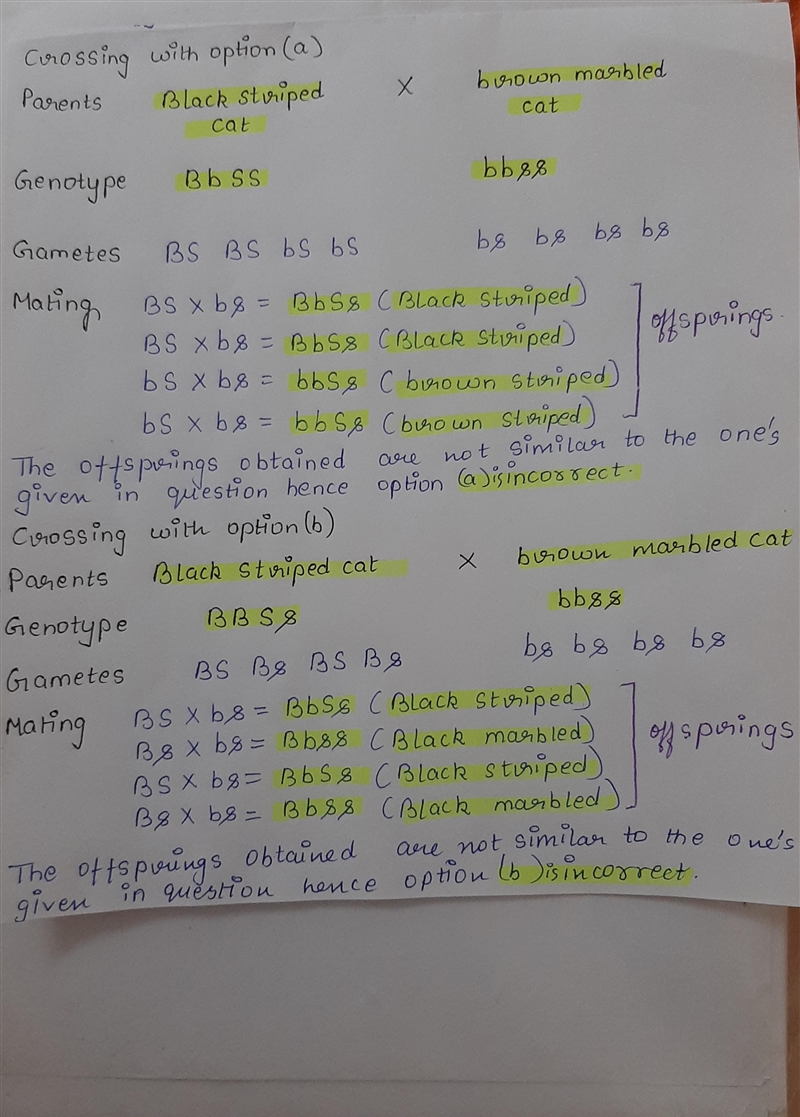 Crossing with option (a)
Parents Black striped cat X brown marbled cat
Genotype BbSS bbss
Gametes BS BS bS bS bs bs bs bs
Mating BS X bs = BbSs (Black striped)
BS X bs = BbSs (Black striped)
bS X bs = bbSs (brown striped)
bS X bs = bbSs (brown striped)
offsprings.
The offsprings obtained are not similar to the one's
given in question hence option (a) is incorrect.
Crossing with option (b)
Parents Black striped cat X brown marbled cat
Genotype BBSs bbss
Gametes BS Bs BS Bs bs bs bs bs
Mating BS X bs = BbSs (Black striped)
Bs X bs = Bbss (Black marbled)
BS X bs = BbSs (Black striped)
Bs X bs = Bbss (Black marbled)
offsprings
The offsprings obtained are not similar to the one's
given in question hence option (b) is incorrect.